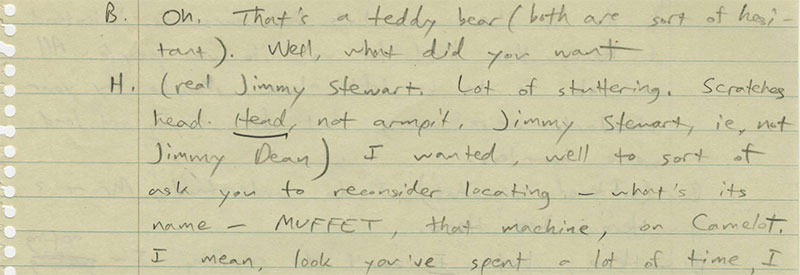 B. Oh. That's a teddy bear (both are sort of hesi-
tant). Well, what did you want
H. (real Jimmy Stewart. Lot of stuttering. Scratches
head. Head, not armpit. Jimmy Stewart, ie, not
Jimmy Dean) I wanted, well to sort of
ask you to reconsider locating – what's its
name – MUFFET, that machine, on Camelot.
I mean, look you've spent a lot of time, I